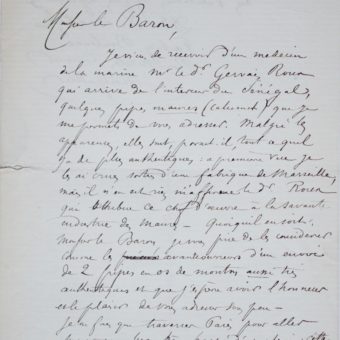 Monsieur le Baron,
Je viens de recevoir d'un médecin
de la marine Mr le Dr Gervais Roux
qui arrive de l'intérieur du Sénégal,
quelques pipes maures que je
me permets de vous adresser. Malgré les
apparences, elles sont, paraît-il, tout ce qu'il
y a de plus authentiques : à première vue je
les ai crues sorties d'une fabrique de Marseille,
mais il n'en est rien m'affirme le Dr Roux
qui attribue ce chef d'œuvre à la savante
industrie des Maures — Quoiqu'il en soit,
Monsieur le Baron, je vous prie de les considérer
comme les avant-coureurs d'un envoi
de 2 pipes en os de mouton aussi très
authentiques et que j'espère avoir l'honneur
et le plaisir de vous adresser sous peu —
Je ne fais que traverser Paris pour aller